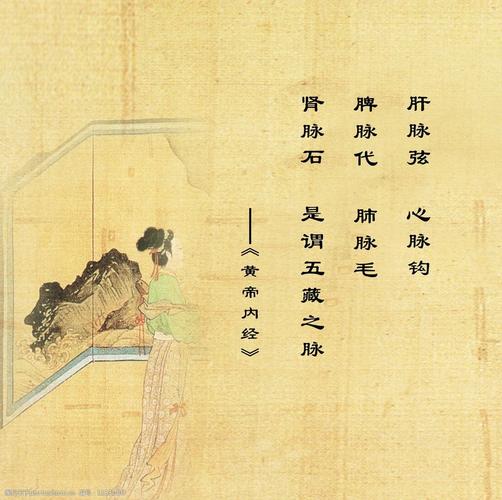 肝脉弦 心脉钩
脾脉代 肺脉毛
肾脉石 是谓五藏之脉
——《黄帝内经》